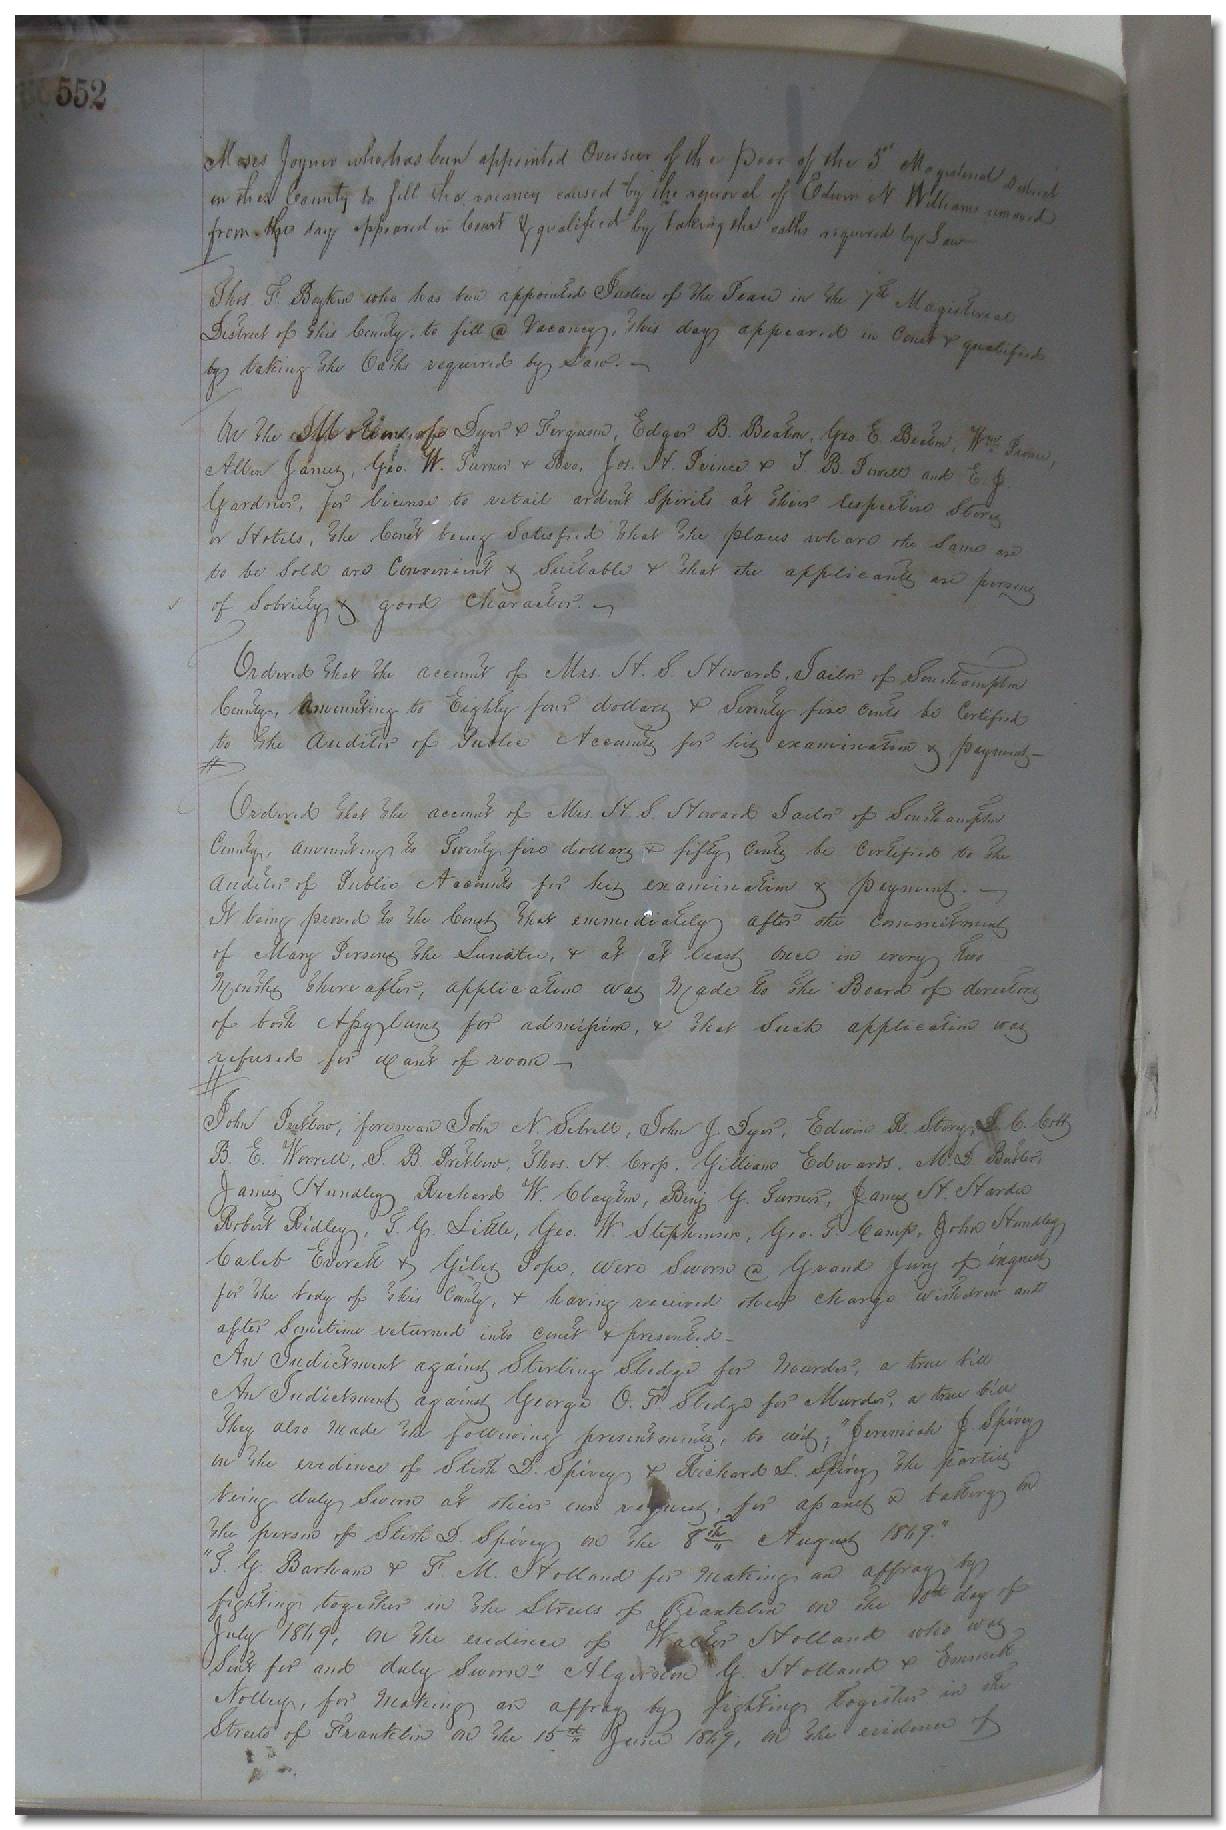 552
Moses Joyner who has been appointed Overseer of the Poor of the 5th Magisterial District
in this County to fill the vacancy caused by the removal of Edwin N Williams removed
from this day appeared in Court & qualified by taking the oaths required by Law
Thos. F. Boykin who has been appointed Justice of the Peace in the 7th Magisterial
District of this County, to fill a Vacancy, this day appeared in Court & qualified
by taking the Oaths required by Law.
On the Motion of Dyer & Ferguson, Edgar B. Beaton, Geo E. Beaton, Wm
Allen James, Geo. W. Turner & Bro, Jos. H. Prince & T. B. Powell and E. J.
Gardner, for license to retail ardent Spirits at their respective Stores
or Hotels, the Court being Satisfied that the places where the Same are
to be Sold are Convenient & Suitable & that the applicants are persons
of Sobriety & good Character.
Ordered that the account of Mrs. H. S. Howard, Jailor of Southampton
County, Amounting to Eighty four dollars & Seventy five cents be Certified
to the Auditor of Public Accounts for his examination & payment
Ordered that the account of Mrs. H. S. Howard Jailor of Southampton
County, amounting to Twenty five dollars & fifty cents be certified to the
Auditor of Public Accounts for his examination & payment.
It being proved to the Court that immediately after the commitment
of Mary Persons the Lunatic, & at at least once in every two
Months thereafter, application was Made to the Board of directors
of both Asylums for admission, & that Such application was
refused for want of room
John Pretlow, foreman John N. Sebrell, John J. Dyer, Edwin R. Story, C. Cobb
B. E. Worrell, S. B. Pretlow, Thos. H. Crop, Gilliam Edwards, M. D. Butler,
James Hundley, Richard W. Clayton, Benj G. Turner, James H. Harda
Robert Ridley, T. G. Little, Geo. W. Stephenson, Geo. T. Camp, John Hundley
Caleb Everett & Giles Pope, were Sworn a Grand Jury of inquest
for the body of this County, & having received their charge withdrew and
after Sometime returned into court & presented
An Indictment against Sterling Sledge for Murder, a true bill
An Indictment against George O. F. Sledge for Murder, a true bill
They also Made the following presentments, to wit; "Jeremiah J. Spivey
on the evidence of Stith D. Spivey & Richard L. Spivey the parties
being duly Sworn at their own request, for apault & battery on
the person of Stith D. Spivey on the 8th August 1869."
"T. G. Barham & F. M. Holland for Making an affray by
fighting together in the Streets of Franklin on the 10th day of
July 1869, on the evidence of Walter Holland who was
Sent for and duly Sworn" Algernon G. Holland & Emmett
Nolley, for Making an affray by fighting together in the
Streets of Franklin on the 15th June 1869, on the evidence of